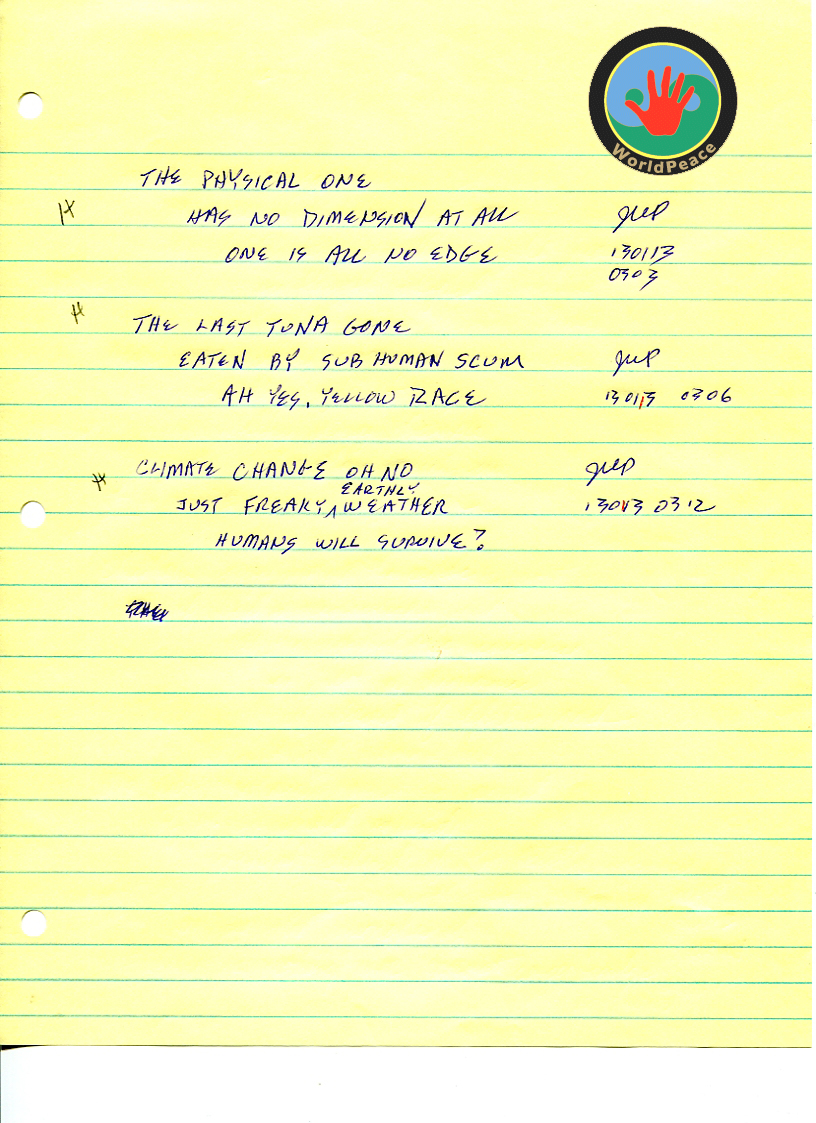 WorldPeace
THE PHYSICAL ONE
HAS NO DIMENSION AT ALL JWP
ONE IS ALL NO EDGE 130113
0303
THE LAST TUNA GONE
EATEN BY SUB HUMAN SCUM JWP
AH YES, YELLOW RACE 130113 0306
CLIMATE CHANGE OH NO JWP
EARTHLY
JUST FREAKY WEATHER 130113 0312
HUMANS WILL SURVIVE?